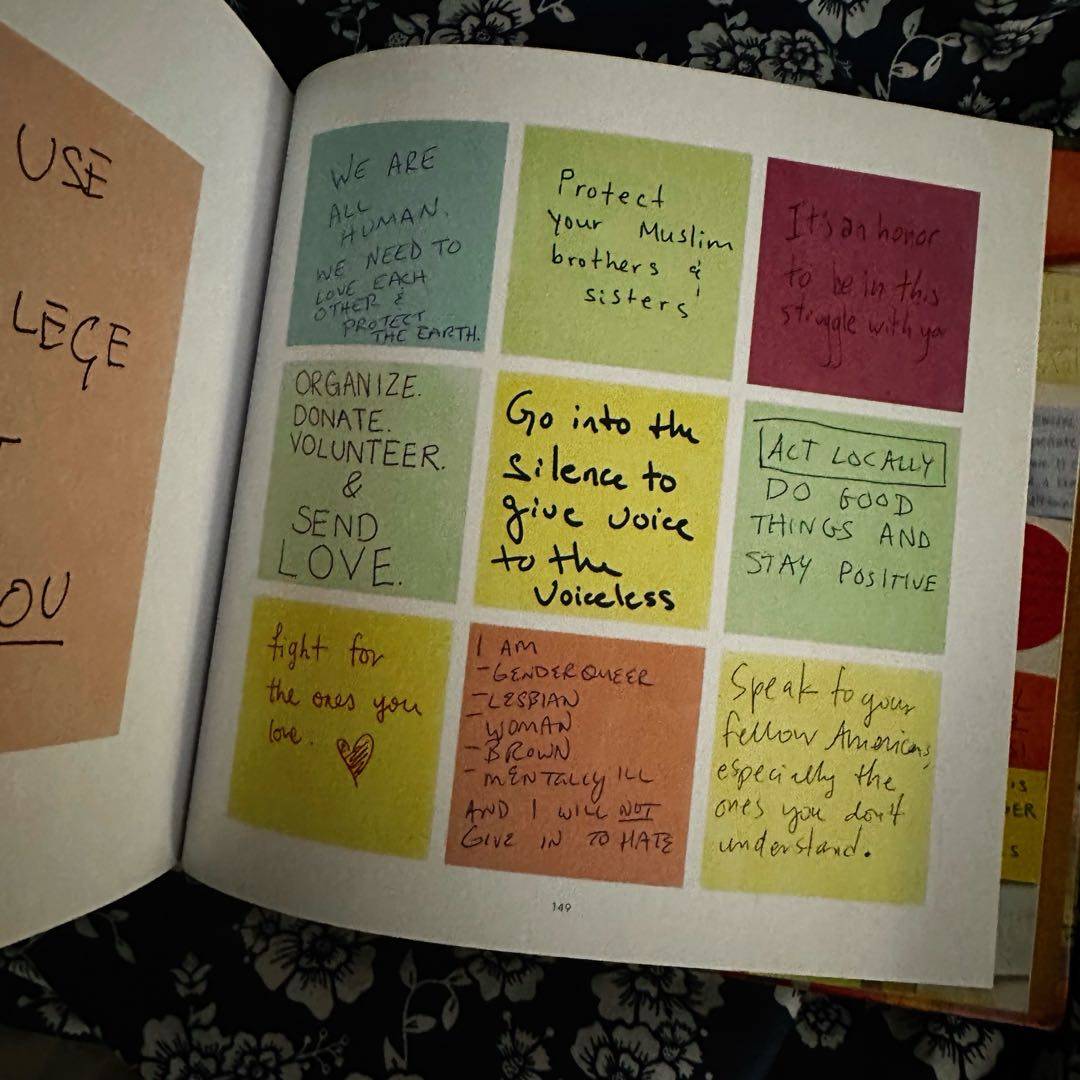 USE
LEGE
OU
WE ARE
ALL
HUMAN.
WE NEED TO
LOVE EACH
OTHER &
PROTECT
THE EARTH.
Protect
your Muslim
brothers &
sisters
It's an honor
to be in this
struggle with you
ORGANIZE.
DONATE.
VOLUNTEER.
&
SEND
LOVE.
Go into the
silence to
give voice
to the
voiceless
ACT LOCALLY
DO GOOD
THINGS AND
STAY POSITIVE
fight for
the ones you
love.
I AM
- GENDERQUEER
- LESBIAN
- WOMAN
- BROWN
- MENTALLY ILL
AND I WILL NOT
GIVE IN TO HATE
Speak to your
fellow Americans,
especially the
ones you don't
understand.
149